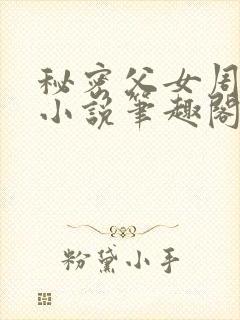 秘密父女周
小說筆趣閣
粉黛小手